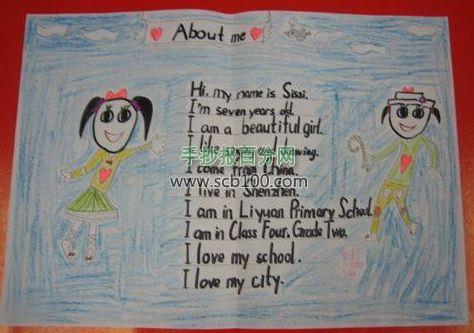 About me
Hi, my name is Sissi.
I'm seven years old.
I am a beautiful girl.
I
手抄报百分网
I come from China.
www.scb100.com
I live in Shenzhen.
I am in Liyuan Primary School.
I am in Class Four, Grade Two.
I love my school.
I love my city.